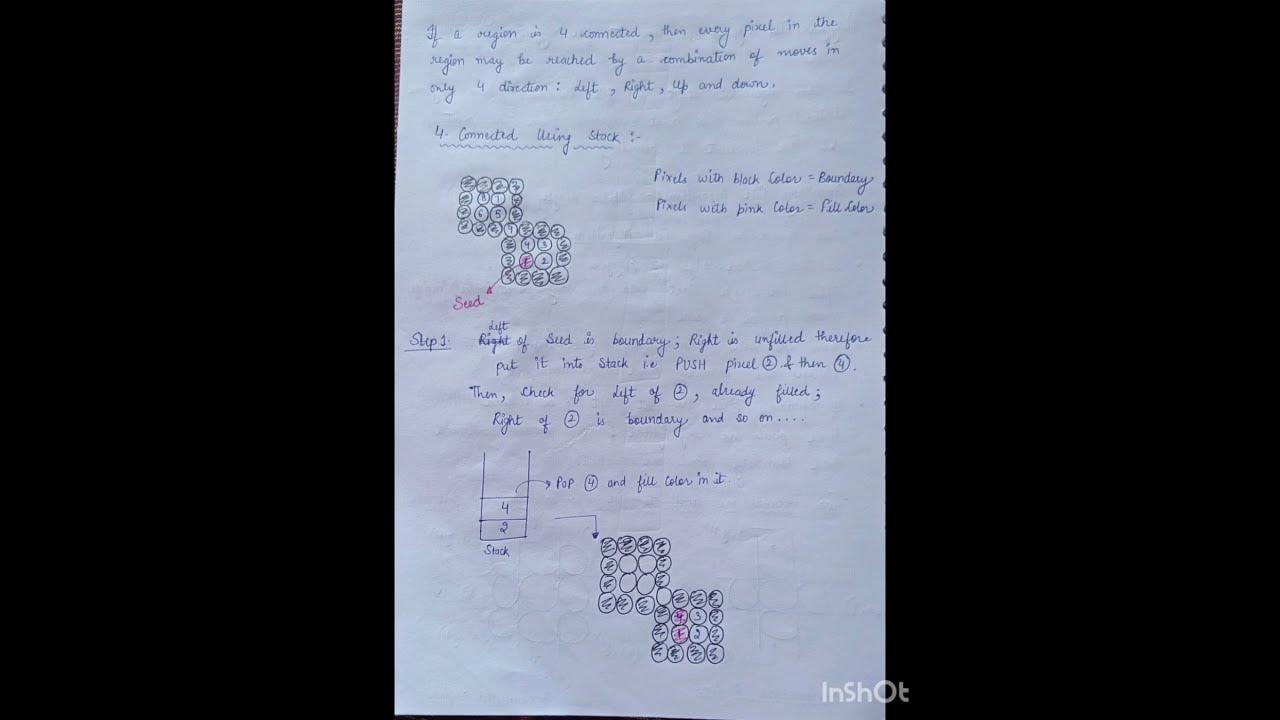 If a region is 4 connected, then every pixel in the
region may be reached by a combination of moves in
only 4 direction: Left, Right, Up and down.
4- Connected Using Stack :-
Pixels with black Color = Boundary
Pixels with pink Color = Fill Color
8 7
6 5
9
4 3
1 2
Seed
Left
Step 1. Right of Seed is boundary; Right is unfilled therefore
put it into Stack i.e PUSH pixel 2 & then 4.
Then, Check for Left of 2, already filled;
Right of 2 is boundary and so on....
POP 4 and fill Color in it.
4
2
Stack
4 3
1 2
InShOt